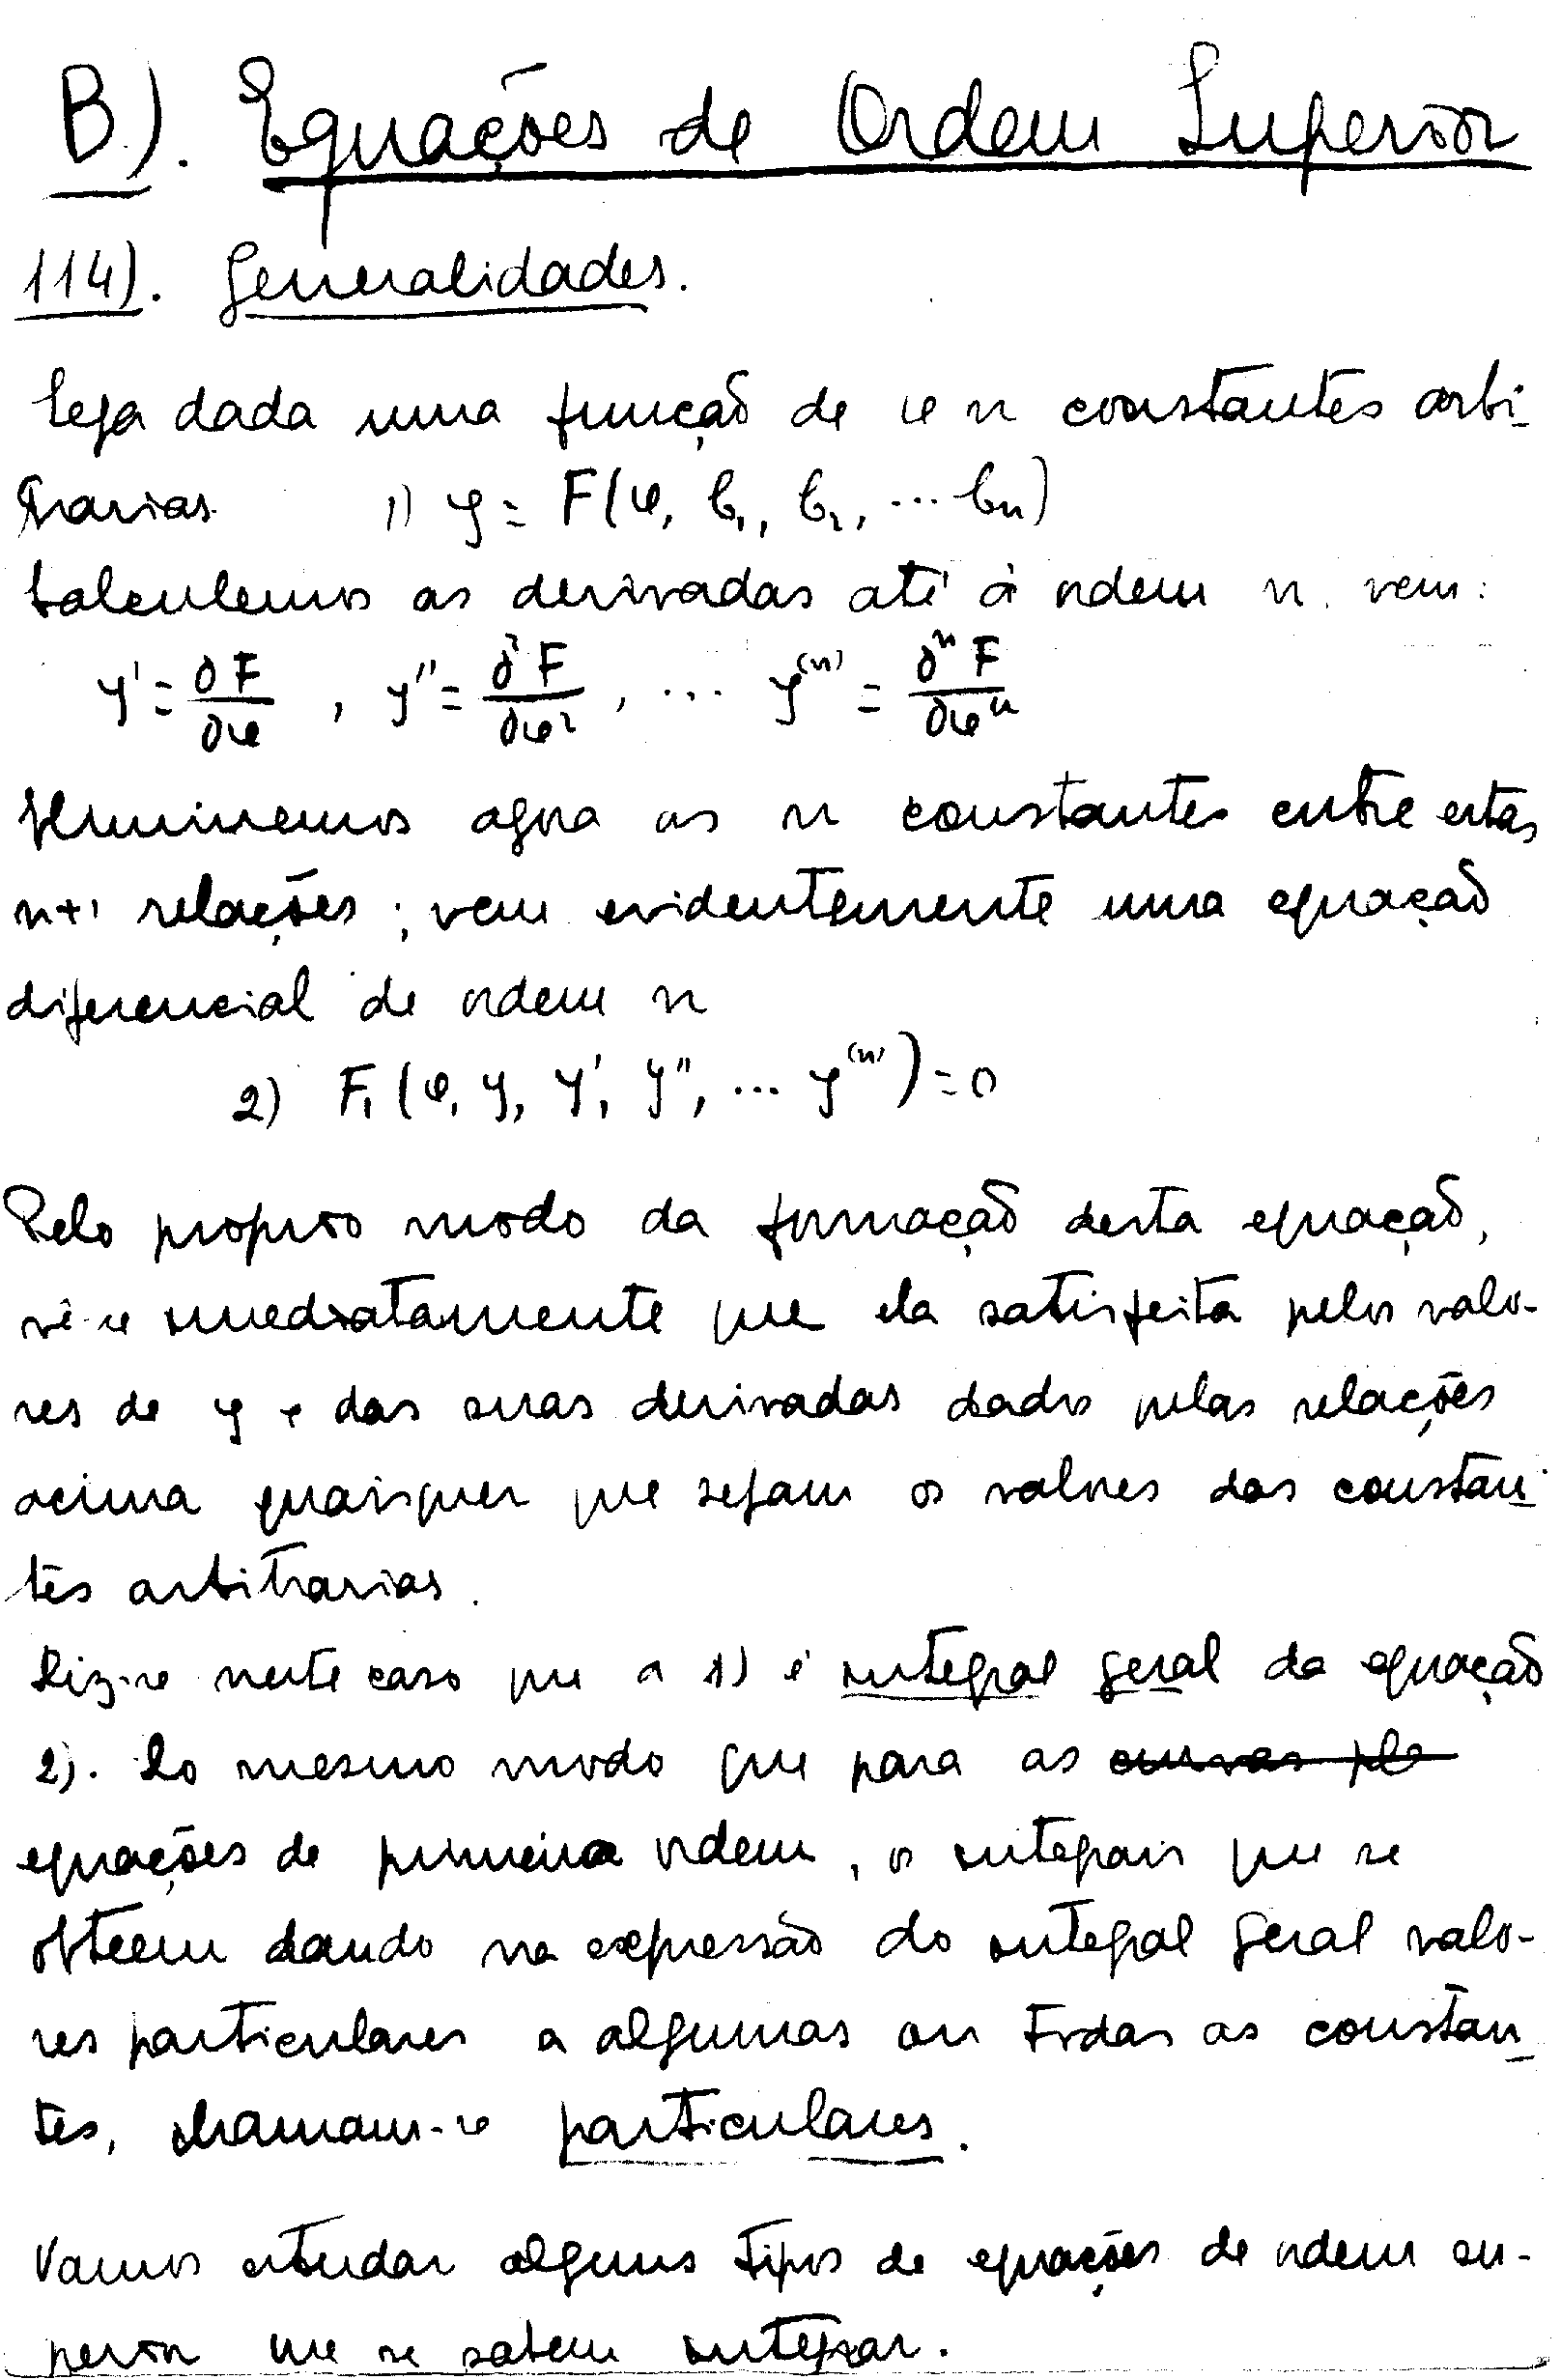 B). Equações de Ordem Superior
114). Generalidades.
Seja dada uma função de x e n constantes arbi-
trarias 1) y = F(x, C₁, C₂, ... Cn)
Calculemos as derivadas até à ordem n. vem:
y' = ∂F/∂x , y'' = ∂²F/∂x² , ... y⁽ⁿ⁾ = ∂ⁿF/∂xⁿ
Eliminemos agora as n constantes entre estas
n+1 relações; vem evidentemente uma equação
diferencial de ordem n
2) F₁(x, y, y', y'', ... y⁽ⁿ⁾) = 0
Pelo proprio modo da formação desta equação,
vê-se imediatamente que ela satisfeita pelos valo-
res de y e das suas derivadas dados pelas relações
acima quaisquer que sejam os valores das constan-
tes arbitrarias.
Diz-se neste caso que a 1) é integral geral da equação
2). Do mesmo modo que para as curvas pla
equações de primeira ordem, os integrais que se
obteem dando na expressão do integral geral valo-
res particulares a algumas ou todas as constan-
tes, chamam-se particulares.
Vamos estudar alguns tipos de equações de ordem su-
perior que se sabem integrar.